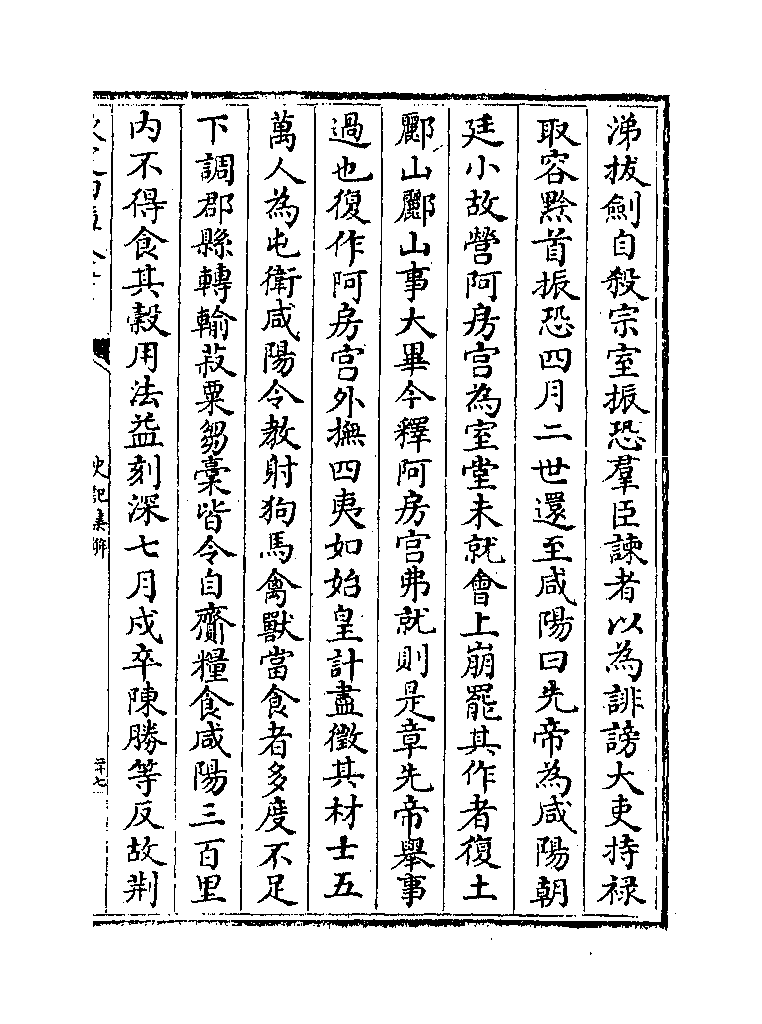 涕拔劍自殺宗室振恐羣臣諫者以為誹謗大吏持祿
取容黔首振恐四月二世還至咸陽曰先帝為咸陽朝
廷小故營阿房宫為室堂未就會上崩罷其作者復土
酈山酈山事大畢今釋阿房宫弗就則是章先帝舉事
過也復作阿房宫外撫四夷如始皇計盡徵其材士五
萬人為屯衛咸陽令教射狗馬禽獸當食者多度不足
下調郡縣轉輸菽粟芻稾皆令自齎糧食咸陽三百里
内不得食其穀用法益刻深七月戍卒陳勝等反故荆
史記集解
二十七